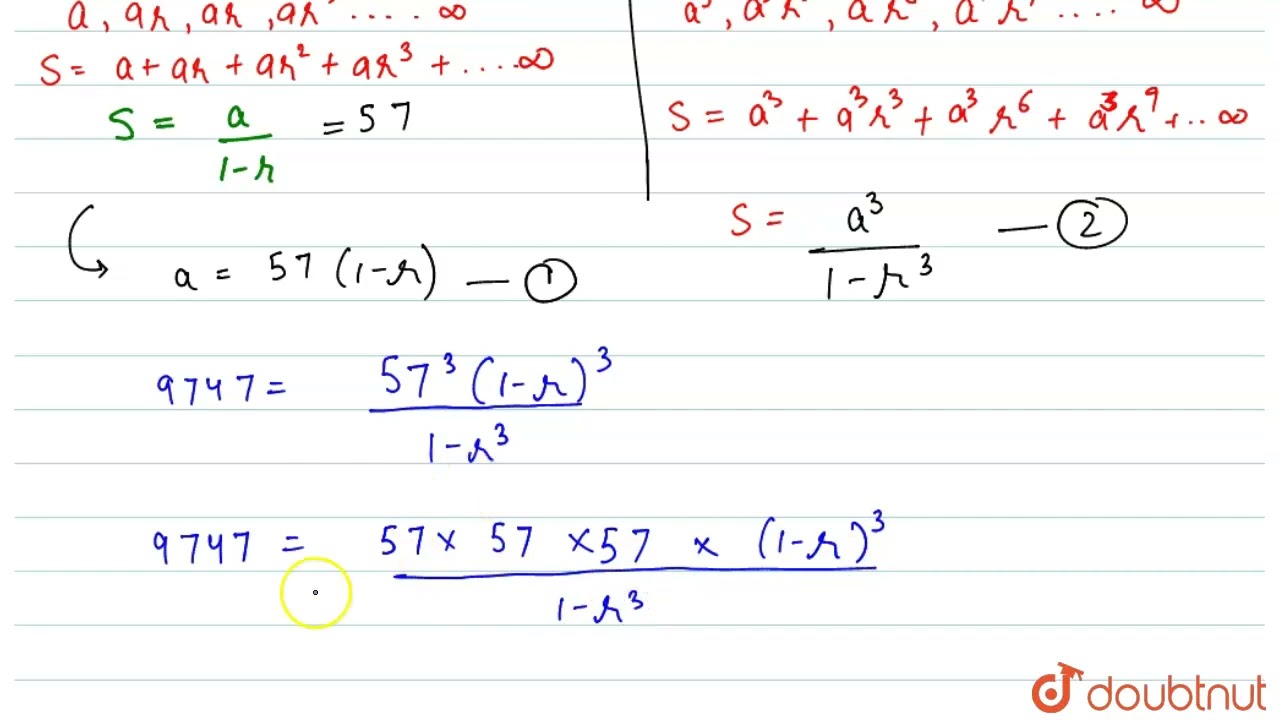 a, ar, ar, ar ..... ∞
S = a + ar + ar² + ar³ + .... ∞
S = a/(1-r) = 57
a = 57 (1-r) — ①
a³, a³r³, a³r⁶, a³r⁹ .... ∞
S = a³ + a³r³ + a³r⁶ + a³r⁹ + .. ∞
S = a³/(1-r³) — ②
9747 = 57³(1-r)³/(1-r³)
9747 = 57 × 57 × 57 × (1-r)³/(1-r³)
doubtnut